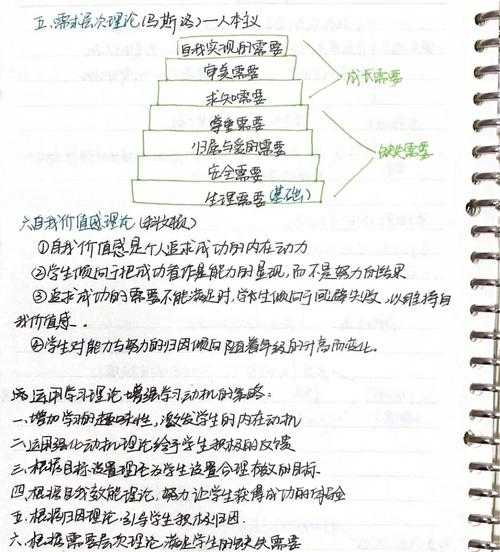 五.需求层次理论(马斯洛)—人本主义
自我实现的需要
审美需要
成长需要
求知需要
尊重需要
归属与爱的需要
缺失需要
安全需要
生理需要(基础)
六.自我价值感理论(科文顿)
①自我价值感是个人追求成功的内在动力
②学生倾向于把成功看作是能力的显现,而不是努力的结果
③追求成功的需要不能满足时,学生倾向于回避失败,以维持自
我价值感.
④学生对能力与努力的归因倾向随着年级的升高而变化.
运用学习理论增强学习动机的策略:
一.增加学习的趣味性,激发学生的内在动机
二.运用强化动机理论给予学生积极的反馈
三.根据目标设置理论为学生设置合理有效的目标
四.根据自我效能理论,努力让学生获得成功的体验
五.根据归因理论,引导学生积极归因.
六.根据需要层次理论,满足学生的缺失需要